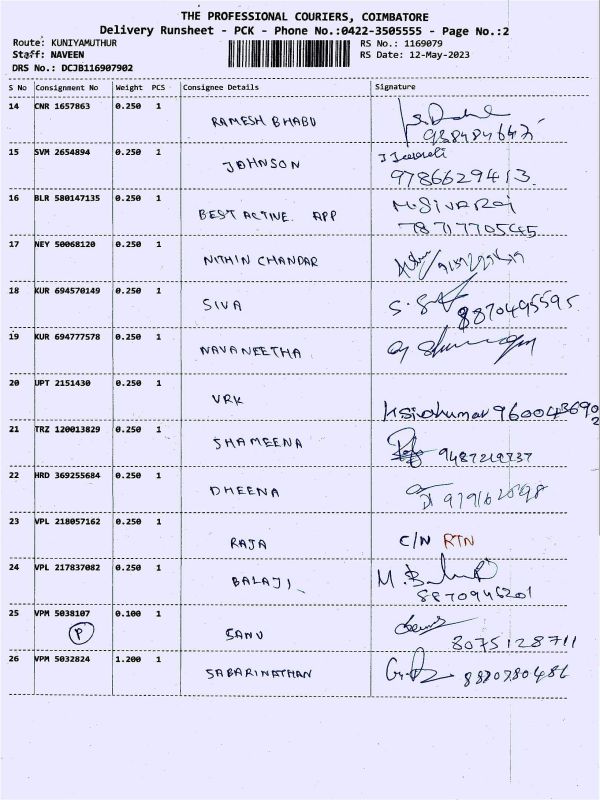 THE PROFESSIONAL COURIERS, COIMBATORE
Delivery Runsheet - PCK - Phone No.:0422-3505555 - Page No.:2
Route: KUNIYAMUTHUR RS No.: 1169079
Staff: NAVEEN RS Date: 12-May-2023
DRS No.: DCJB116907902
S No Consignment No Weight PCS Consignee Details Signature
14 CNR 1657863 0.250 1 RAMESH BHABU
15 SVM 2654894 0.250 1 JOHNSON
9786629413.
16 BLR 580147135 0.250 1 BEST ACTIVE APP M.SIVARAJ
7871770545
17 NEY 50068120 0.250 1 NITHIN CHANDAR
18 KUR 694570149 0.250 1 SIVA
8870495595
19 KUR 694777578 0.250 1 NAVANEETHA
20 UPT 2151430 0.250 1 VRK
Ksivakumar 9600436902
21 TRZ 120013829 0.250 1 SHAMEENA
9487219737
22 HRD 369255684 0.250 1 DHEENA
23 VPL 218057162 0.250 1 RAJA C/N RTN
24 VPL 217837082 0.250 1 BALAJI
8870946201
25 VPM 5038107 0.100 1 SANU
P 8075128711
26 VPM 5032824 1.200 1 SABARINATHAN 8870780486